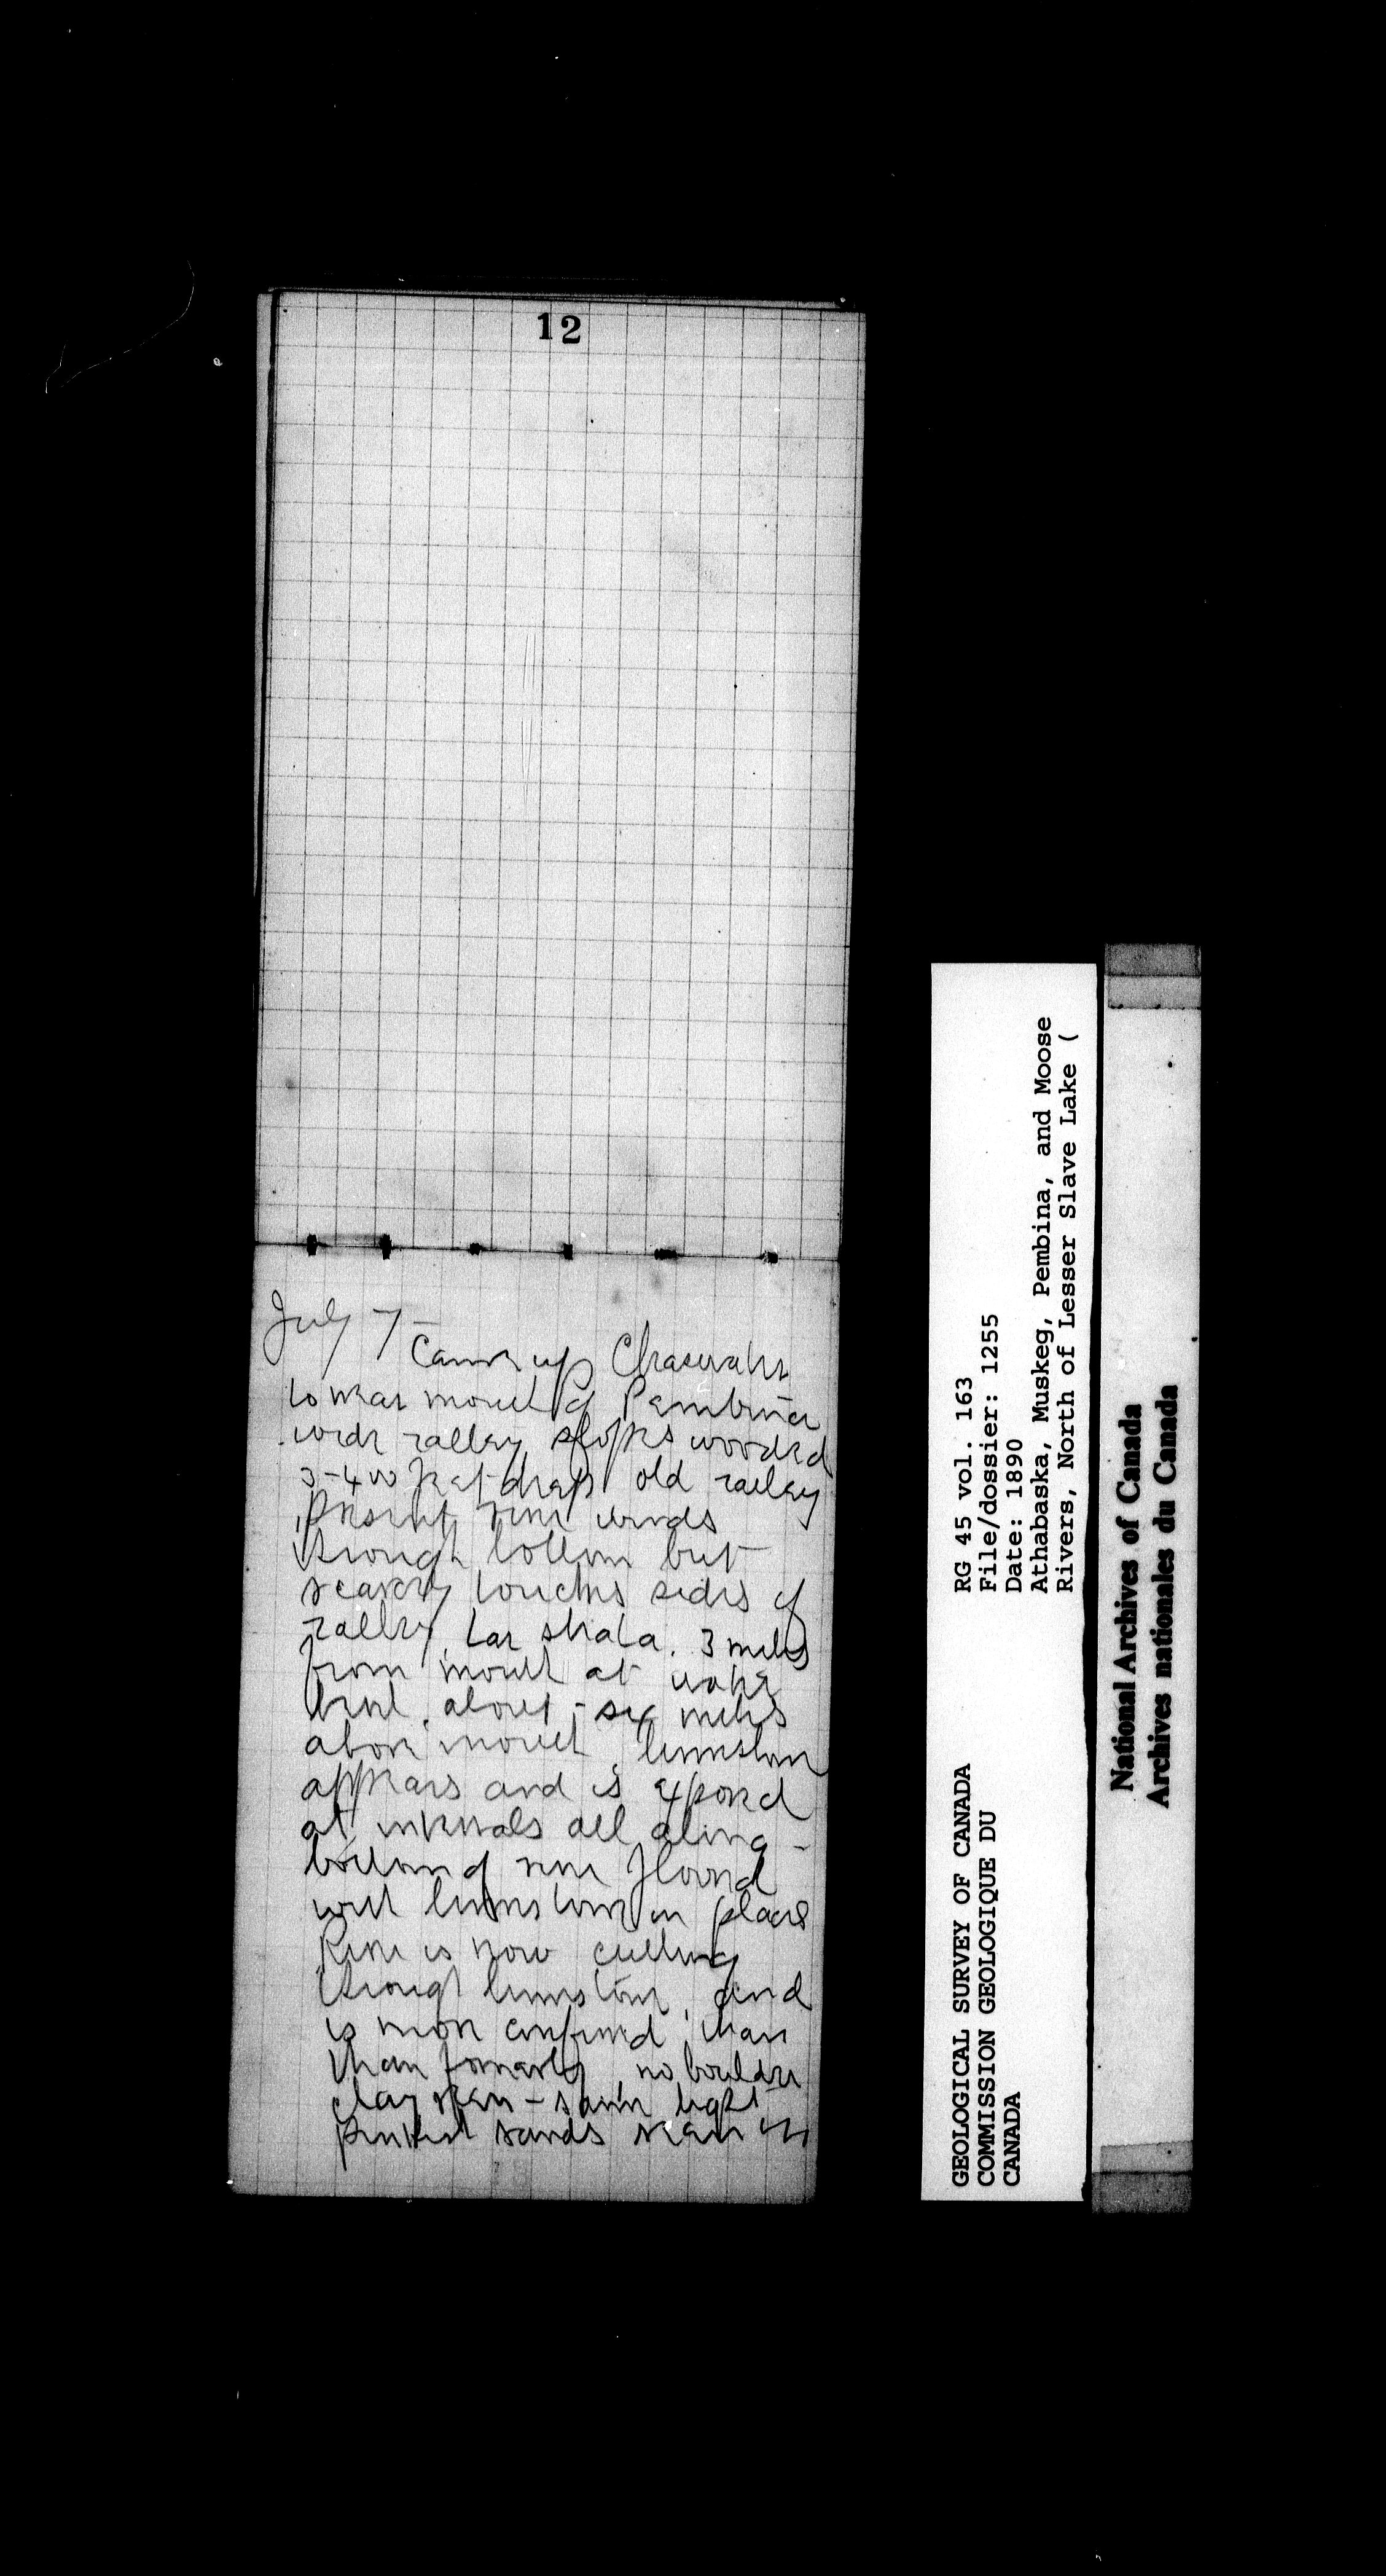 12
July 7
Came up Clearwater
to near mouth of Pembina
wide valley slopes wooded
3-400 feet deep old valley
Present river winds
through bottom but
scarcely touches sides of
valley, tar strata. 3 miles
from mouth at water
level, about six miles
above mouth limestone
appears and is exposed
at intervals all along -
bottom of river floored
with limestone in places
River is now cutting
through limestone, and
is more confined than
than formerly no boulder
clay seen - some light
sands seen in
GEOLOGICAL SURVEY OF CANADA
COMMISSION GEOLOGIQUE DU
CANADA
RG 45 vol. 163
File/dossier: 1255
Date: 1890
Athabaska, Muskeg, Pembina, and Moose
Rivers, North of Lesser Slave Lake (
National Archives of Canada
Archives nationales du Canada